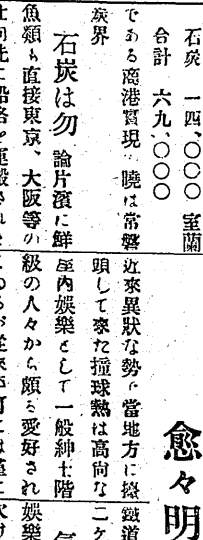 石炭 一四、〇〇〇 室蘭
合計 六九、〇〇〇
である商港實現の曉は常磐
炭界
石炭は勿論片濱に鮮
魚類も直接東京、大阪等の
愈々明
近來異狀な勢で當地方に擡
頭して來た撞球熱は高尙な
室內娛樂として一般紳士階
級の人々から頗る愛好され
鐵道
二ケ
娛樂